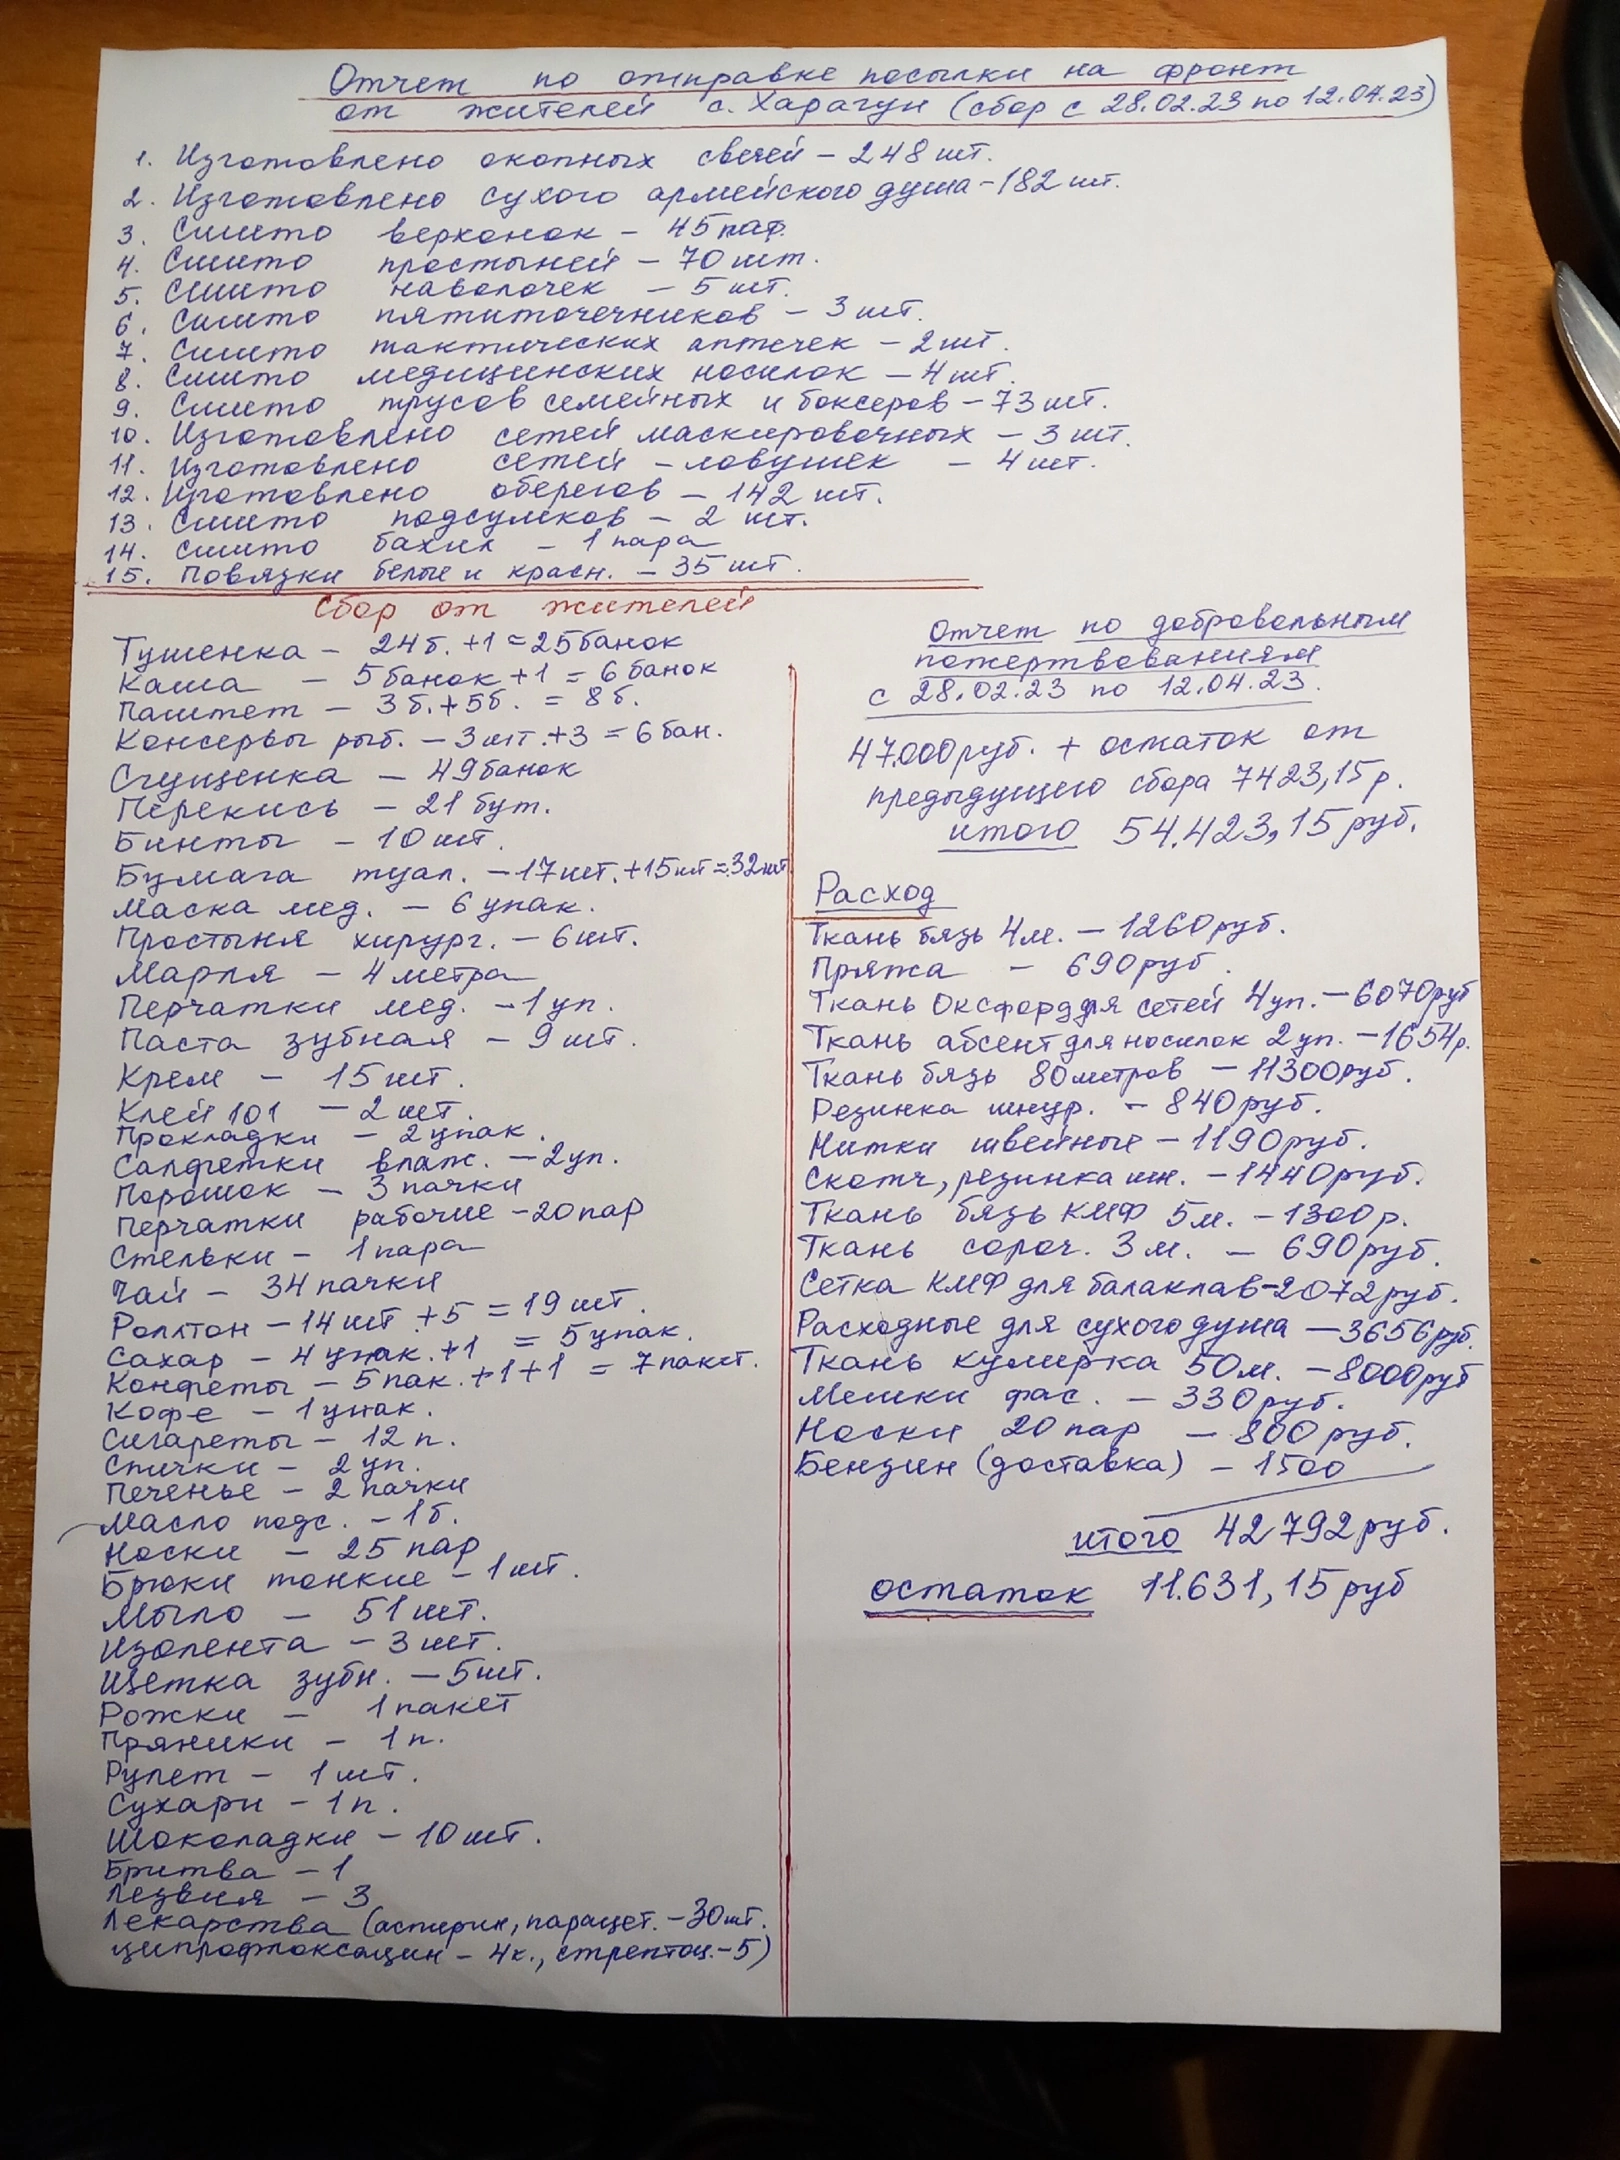 Отчет по отправке посылки на фронт
от жителей с. Харагун (сбор с 28.02.23 по 12.04.23)
1. Изготовлено окопных свечей – 248 шт.
2. Изготовлено сухого армейского душа – 182 шт.
3. Сшито верхонок – 45 пар.
4. Сшито простыней – 70 шт.
5. Сшито наволочек – 5 шт.
6. Сшито пятиточечников – 3 шт.
7. Сшито тактических аптечек – 2 шт.
8. Сшито медицинских носилок – 4 шт.
9. Сшито трусов семейных и боксеров – 73 шт.
10. Изготовлено сетей маскировочных – 3 шт.
11. Изготовлено сетей – ловушек – 4 шт.
12. Изготовлено оберегов – 142 шт.
13. Сшито подсумков – 2 шт.
14. Сшито бахил – 1 пара
15. Повязки белые и красн. – 35 шт.
Сбор от жителей
Тушенка – 24 б. +1 = 25 банок
Каша – 5 банок + 1 = 6 банок
Паштет – 3 б. + 5 б. = 8 б.
Консервы рыб. – 3 шт. + 3 = 6 бан.
Сгущенка – 49 банок
Перекись – 21 бут.
Бинты – 10 шт.
Бумага туал. – 17 шт. + 15 шт = 32 шт
Маска мед. – 6 упак.
Простыня хирург. – 6 шт.
Марля – 4 метра
Перчатки мед. – 1 уп.
Паста зубная – 9 шт.
Крем – 15 шт.
Клей 101 – 2 шт.
Прокладки – 2 упак.
Салфетки влаж. – 2 уп.
Порошок – 3 пачки
Перчатки рабочие – 20 пар
Стельки – 1 пара
Чай – 34 пачки
Роллтон – 14 шт + 5 = 19 шт.
Сахар – 4 упак. + 1 = 5 упак.
Конфеты – 5 пак. + 1 + 1 = 7 пакет.
Кофе – 1 упак.
Сигареты – 12 п.
Спички – 2 уп.
Печенье – 2 пачки
Масло подс. – 1 б.
Носки – 25 пар
Брюки тонкие – 1 шт.
Мыло – 51 шт.
Изолента – 3 шт.
Щетка зубн. – 5 шт.
Рожки – 1 пакет
Пряники – 1 п.
Рулет – 1 шт.
Сухари – 1 п.
Шоколадки – 10 шт.
Бритва – 1
Лезвия – 3
Лекарства (аспирин, парацет. – 30 шт.
ципрофлоксацин – 4 к., стрептоц. – 5)
Отчет по добровольным
пожертвованиям
с 28.02.23 по 12.04.23.
47.000 руб. + остаток от
предыдущего сбора 7423,15 р.
итого 54.423,15 руб.
Расход
Ткань бязь 4 м. – 1260 руб.
Пряжа – 690 руб.
Ткань Оксфорд для сетей 4 уп. – 6070 руб
Ткань абсент для носилок 2 уп. – 1654 р.
Ткань бязь 80 метров – 11300 руб.
Резинка шнур. – 840 руб.
Нитки швейные – 1190 руб.
Скотч, резинка шл. – 1440 руб.
Ткань бязь КМФ 5 м. – 1300 р.
Ткань сороч. 3 м. – 690 руб.
Сетка КМФ для балаклав – 2072 руб.
Расходные для сухого душа – 3656 руб.
Ткань кулирка 50 м. – 8000 руб
Мешки фас. – 330 руб.
Носки 20 пар – 800 руб.
Бензин (доставка) – 1500
итого 42792 руб.
остаток 11.631,15 руб